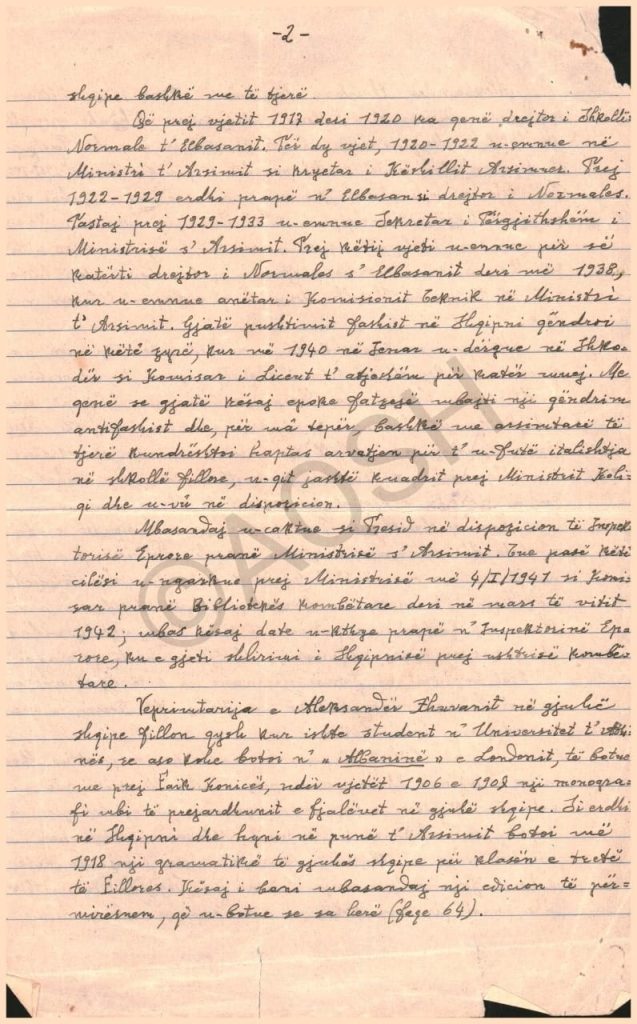 -2-
shqipe bashkë me të tjerë.
Që prej vjetit 1917 deri 1920 ka qenë drejtor i Shkollës
Normale t' Elbasanit. Për dy vjet, 1920-1922 u-emnue në
Ministri t' Arsimit si kryetar i Këshillit Arsimuer. Prej
1922-1929 erdhi prapë n' Elbasan si drejtor i Normales.
Pastaj prej 1929-1933 u-emnue Sekretar i Përgjithshëm i
Ministrisë s' Arsimit. Prej këtij vjeti u-emnue për së
katërti drejtor i Normales s' Elbasanit deri më 1938,
kur u-emnue anëtar i Komisionit Teknik në Ministri
t' Arsimit. Gjatë pushtimit fashist në Shqipni qëndroi
në këtë zyrë, kur më 1940 në Jenar u-dërgue në Shko-
dër si Komisar i Liceut t' atjeshëm për katër muej. Me
qenë se gjatë kësaj epoke fatzezë mbajti nji qëndrim
antifashist dhe, për mâ tepër, bashkë me arsimtarë të
tjerë kundrështoi haptas orvatjen për t' u-futë italishtja
në shkollë fillore, u-qit jashtë kuadrit prej Ministrit Koli-
qi dhe u-vû në dispozicion.
Mbasandaj u-caktue si Presid në dispozicion të Inspek-
torisë Eprore pranë Ministrisë s' Arsimit. Tue pasë këtë
cilësi u-ngarkue prej Ministrisë më 4/I/1941 si Komi-
sar pranë Bibliotekës Kombëtare deri në mars të vitit
1942; mbas kësaj date u-kthye prapë n' Inspektorinë Epr-
rore, ku e gjeti shlirimi i Shqipnisë prej ushtrisë kombë-
tare.
Veprimtarija e Aleksandër Xhuvanit në gjuhë
shqipe fillon qysh kur ishte student n' Universitet t' Athi-
nës, se aso kohe botoi n' „Albaninë" e Londonit, të botue
me prej Faik Konicës, ndër vjetët 1906 e 1907 nji monogra-
fi mbi të prejardhunit e fjalëvet në gjuhë shqipe. Si erdhi
në Shqipni dhe hyni në punë t' Arsimit botoi më
1918 nji gramatikë të gjuhës shqipe për klasën e tretë
të Fillores. Kësaj i bani mbasandaj nji edicion të për-
mirësuem, që u-botue se sa herë (faqe 64).
©AQSH